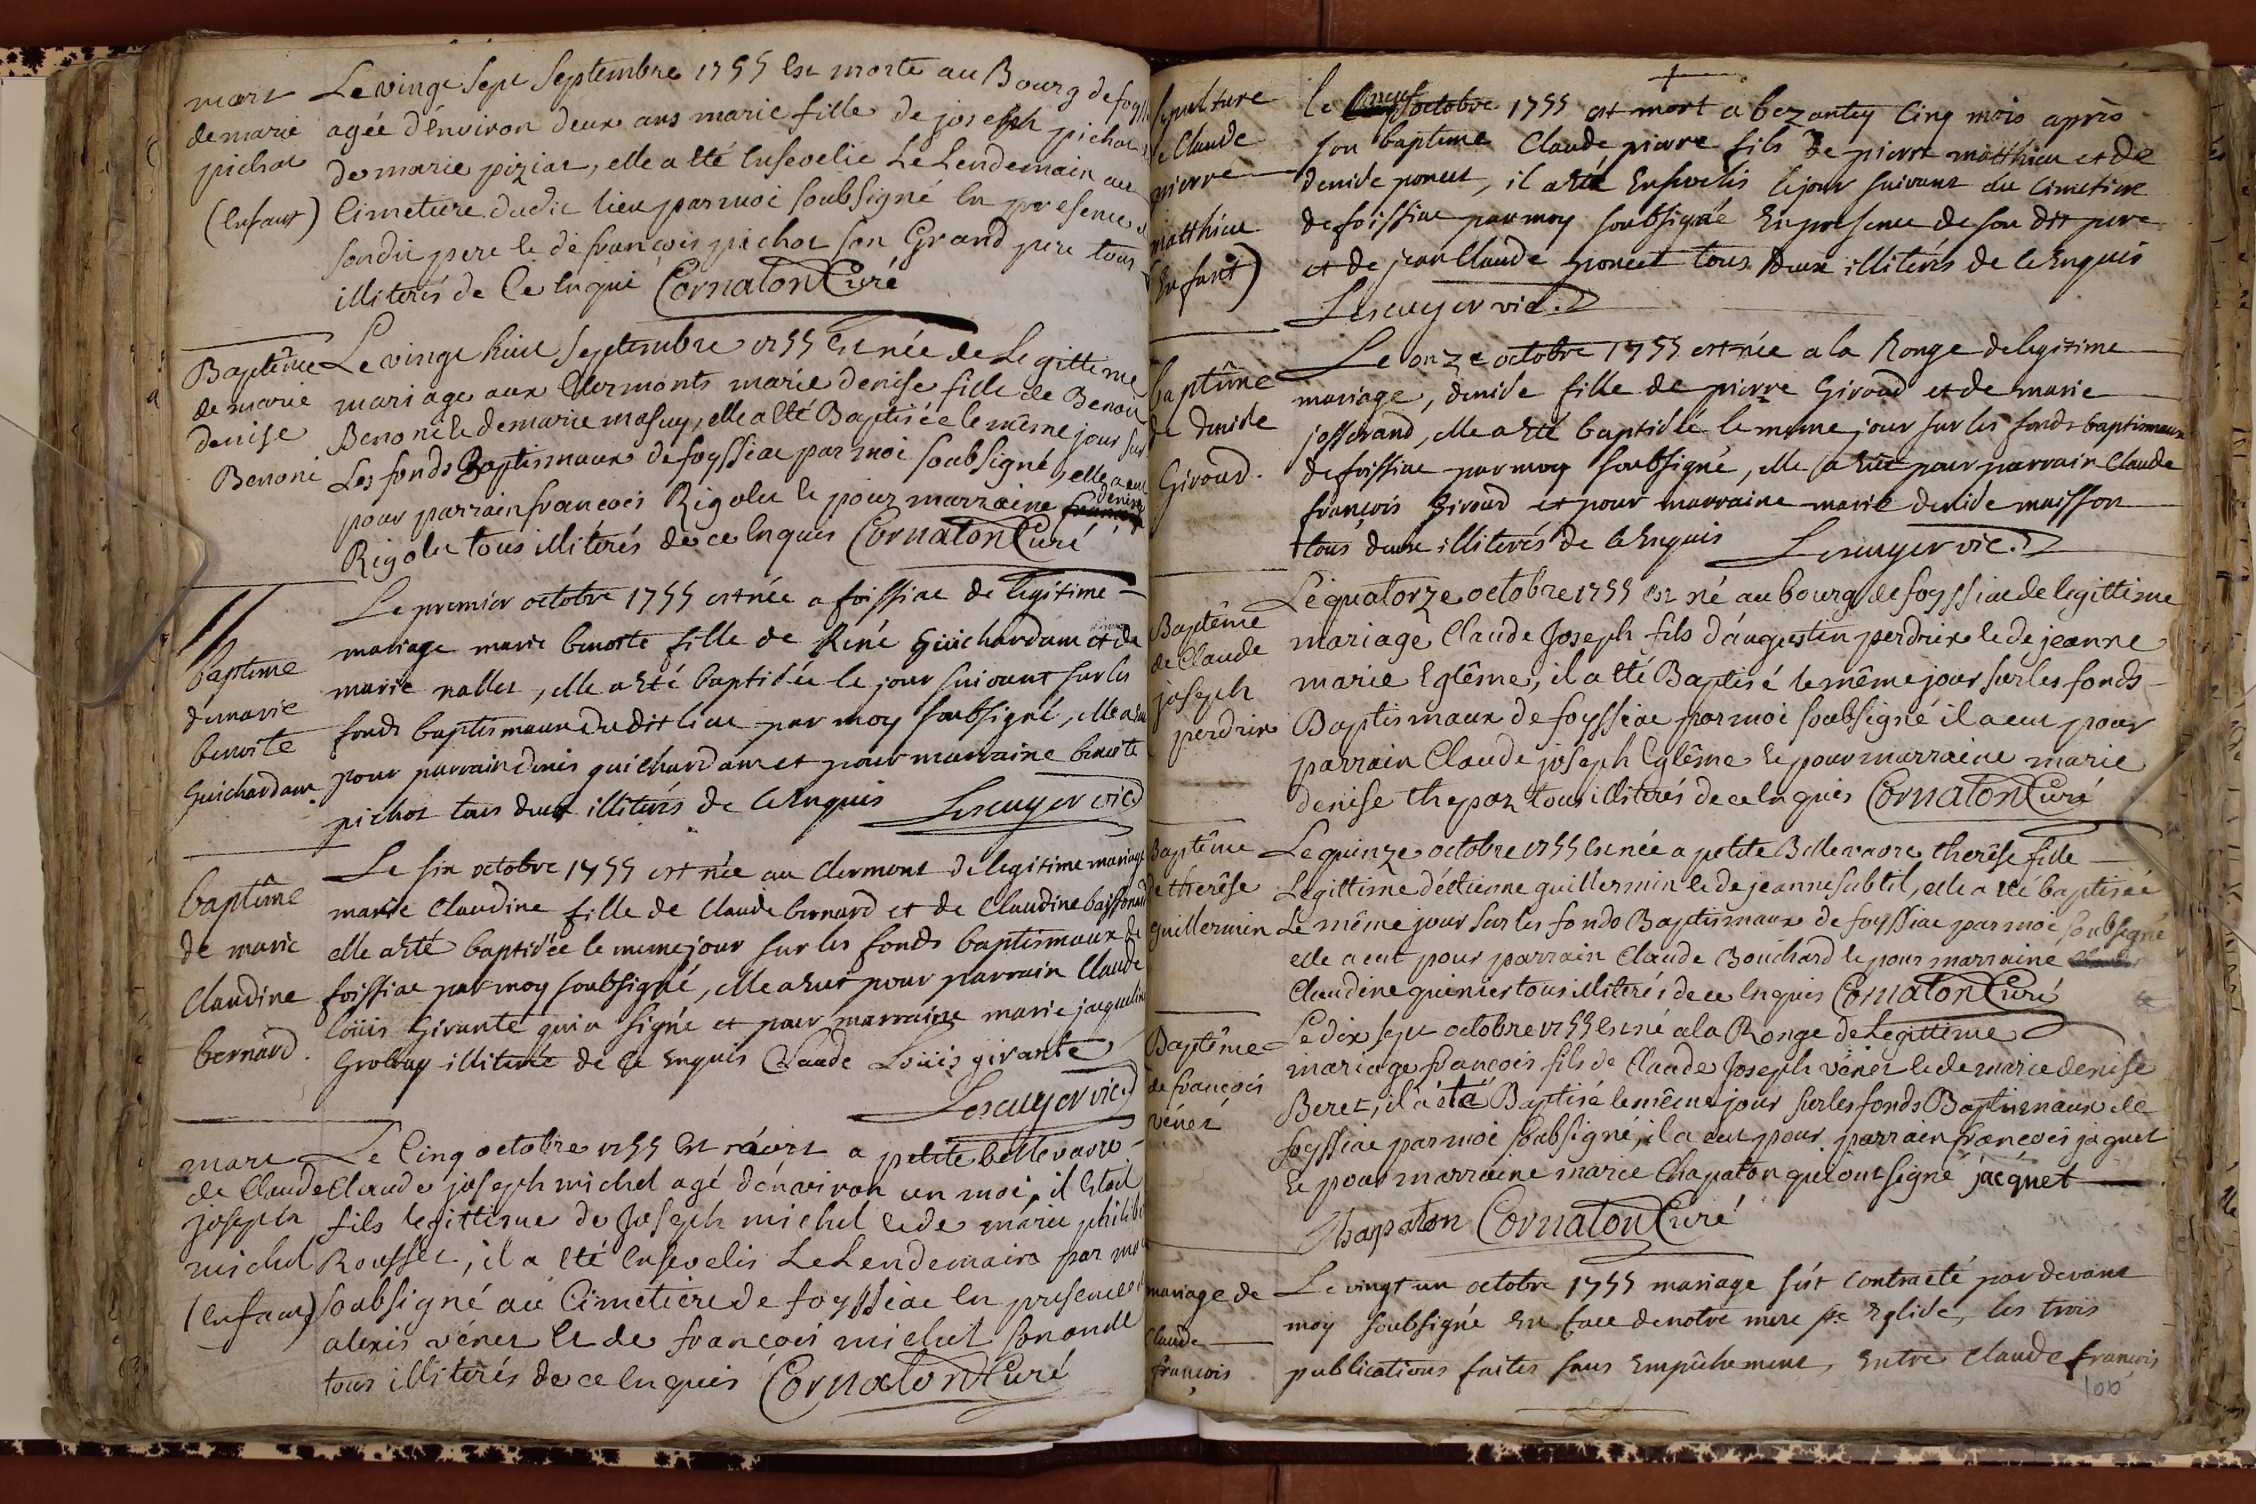 mort
de marie
pichot
(Enfant)
Le vingt sept Septembre 1755 Est morte au Bourg de foyss
agée d'énviron deux ans marie fille de joseph pichot
de marie piziat, elle a Eté Ensevelie Le Lendemain au
Cimetiere dudit lieu par moi soubsigné En presence
sondit pere & de françois pichot son Grand pere tous
illiterés de Ce Enqui Cornaton Curé
Baptême
de marie
denise
Benoni
Le vingt huit septembre 1755 Est née de Legittime
mariage aux Clermonts marie denise fille de Benoit
Benoni & de marie masuy, elle a Eté Baptisée le même jour sur
Les fonds Baptismaux de foyssiac par moi soubsigné, elle a eut
pour parrain francois Rigolet & pour marraine denise
Rigolet tous illiterés de ce Enquis Cornaton Curé
bapteme
de marie
benoite
Guichardam
Le premier octobre 1755 est née a foissiac de legitime
mariage marie benoite fille de René Guichardam et de
marie nallet, elle a Eté baptisée le jour suivant sur les
fonds baptismaux du dit lieu par moy soubsigné, elle a Eut
pour parrain denis guichardam et pour marraine benoite
pichot tous deux illiterés de ce Enquis Lescuyer vic.
baptême
de marie
Claudine
bernard.
Le six octobre 1755 est née au Clermont de legitime mariage
marie Claudine fille de Claude bernard et de Claudine
elle a Eté baptisée le meme jour sur les fonds baptismaux de
foissiac par moy soubsigné, elle a Eut pour parrain Claude
loüis Girante qui a signé et pour marraine marie jacqueline
illiterée de ce Enquis Claude Loüis girante
Lescuyer vic.
mort
de Claude
joseph
michel
(Enfant)
Le Cinq octobre 1755 Est mort a petite bellevavre
Claude joseph michel agé d'énviron un moi, il Etoit
fils legittime de Joseph michel & de marie philib
Rousset, il a Eté Ensevelis Le Lendemain par moi
soubsigné au Cimetiere de foyssiac En presence
alexis vénet & de francois michel son oncle
tous illiterés de ce Enquis Cornaton Curé
sepulture
de Claude
pierre
matthieu
(Enfant)
le neuf octobre 1755 est mort a bezantey Cinq mois après
son bapteme Claude pierre fils de pierre matthieu et de
denise poncet, il a Eté Ensevelis le jour suivant au Cimetiere
de foissiac par moy soubsigné En presence de son dit pere
et de jean Claude poncet tous deux illiterés de ce Enquis
Lescuyer vic.
baptême
de denise
Giroud.
Le onze octobre 1755 est née a la Ronge de legitime
mariage, denise fille de pierre Giroud et de marie
josserand, elle a Eté baptisée le meme jour sur les fonds baptismaux
de foissiac par moy soubsigné, elle a Eut pour parrain Claude
françois Giroud et pour marraine marie denise maisson
tous deux illiterés de ce Enquis Lescuyer vic.
Baptême
de Claude
joseph
perdrix
Le quatorze octobre 1755 Est né au bourg de foyssiac de legittime
mariage Claude Joseph fils d'augustin perdrix & de jeanne
marie Eglême, il a Eté Baptisé le même jour sur les fonds
Baptismaux de foyssiac par moi soubsigné il a eut pour
parrain Claude joseph Eglême & pour marraine marie
denise thepaz tous illiterés de ce Enquis Cornaton Curé
Baptême
de therêse
guillermin
Le quinze octobre 1755 Est née a petite Bellevavre therêse fille
Legittime d'étienne guillermin & de jeanne subtil, elle a Eté baptisée
Le même jour sur les fonds Baptismaux de foyssiac par moi soubsigné
elle a eut pour parrain Claude Bouchard & pour marraine
Claudine quinier tous illiterés de ce Enquis Cornaton Curé
Baptême
de francois
vénet
Le dix sept octobre 1755 Est né a la Ronge de Legittime
mariage francois fils de Claude Joseph vénet & de marie denise
Beret, il a été Baptisé le même jour sur les fonds Baptismaux de
foyssiac par moi soubsigné, il a eut pour parrain francois jaquet
& pour marraine marie Chapaton qui ont signé jacquet
Chapaton Cornaton Curé
mariage de
Claude
françois
Le vingt un octobre 1755 mariage fut contracté par devant
moy soubsigné En face de notre mere ste Eglise, les trois
publications faites sans Empêchement, Entre Claude françois
100